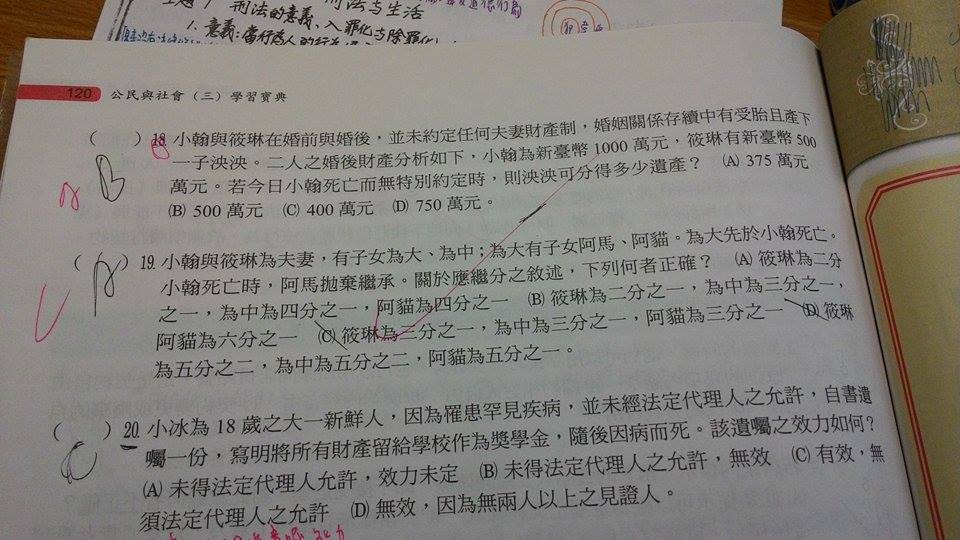 刑法的意義、
刑法与生活
1. 意義:當行為人的行
入罪化与除罪化
120 公民與社會(三)學習寶典
( )18. 小翰與筱琳在婚前與婚後,並未約定任何夫妻財產制,婚姻關係存續中有受胎且產下
B 一子泱泱。二人之婚後財產分析如下,小翰為新臺幣 1000 萬元,筱琳有新臺幣 500
A 萬元。若今日小翰死亡而無特別約定時,則泱泱可分得多少遺產? (A) 375 萬元
(B) 500 萬元 (C) 400 萬元 (D) 750 萬元。
( A )19. 小翰與筱琳為夫妻,有子女為大、為中;為大有子女阿馬、阿貓。為大先於小翰死亡。
小翰死亡時,阿馬拋棄繼承。關於應繼分之敘述,下列何者正確? (A) 筱琳為二分
之一,為中為四分之一,阿貓為四分之一 (B) 筱琳為二分之一,為中為三分之一,
阿貓為六分之一 (C) 筱琳為三分之一,為中為三分之一,阿貓為三分之一 (D) 筱琳
為五分之二,為中為五分之二,阿貓為五分之一。
( )20. 小冰為 18 歲之大一新鮮人,因為罹患罕見疾病,並未經法定代理人之允許,自書遺
C 囑一份,寫明將所有財產留給學校作為獎學金,隨後因病而死。該遺囑之效力如何?
(A) 未得法定代理人允許,效力未定 (B) 未得法定代理人之允許,無效 (C) 有效,無
須法定代理人之允許 (D) 無效,因為無兩人以上之見證人。